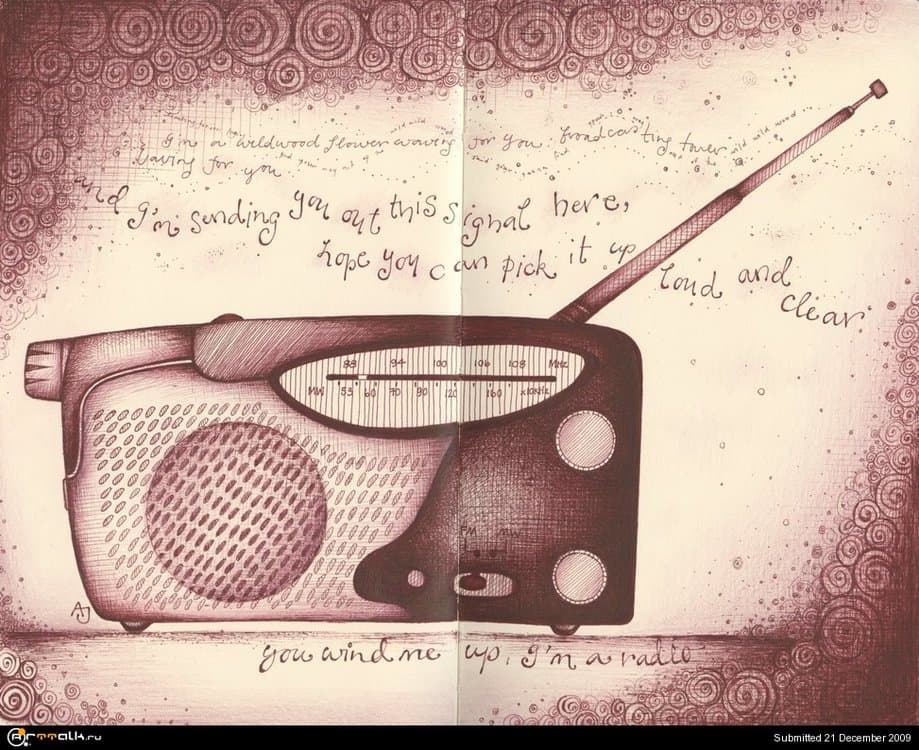 I'm a wildwood flower waving for you broadcasting tower
waving for you
and I'm sending you out this signal here,
hope you can pick it up loud and clear
88 94 100 106 108 MHz
MW 53 60 70 90 120 160 x10KHz
FM MW
AJ
you wind me up, I'm a radio
ArtTalk.ru
Submitted 21 December 2009